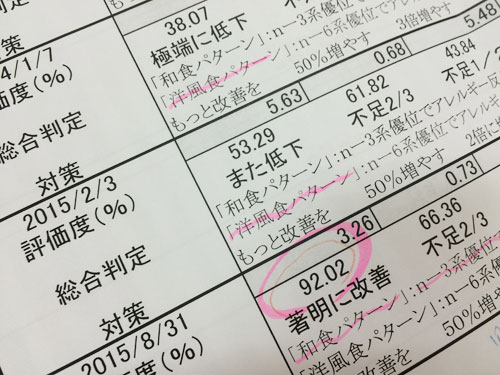 38.07
極端に低下
対策
4/1/7
「和食パターン」:n−3系優位で
3倍増やす
5.48
「洋風食パターン」
50%増やす
もっと改善を
5.63
0.68
43.84
評価度(%)
53.29
61.82
不足1/
総合判定
また低下
不足2/3
「和食パターン」:n−3系優位でアレルギー
対策
「洋風食パターン」:n−6系優位でアレルギー
2015/2/3
もっと改善を
50%増やす
2倍
3.26
0.73
評価度(%)
92.02
66.36
総合判定
著明に改善
不足2/3
「和食パターン」:n−3系優位
対策
「洋風食パターン」:n−6系優
2015/8/31
もっと改善を
50%増やす